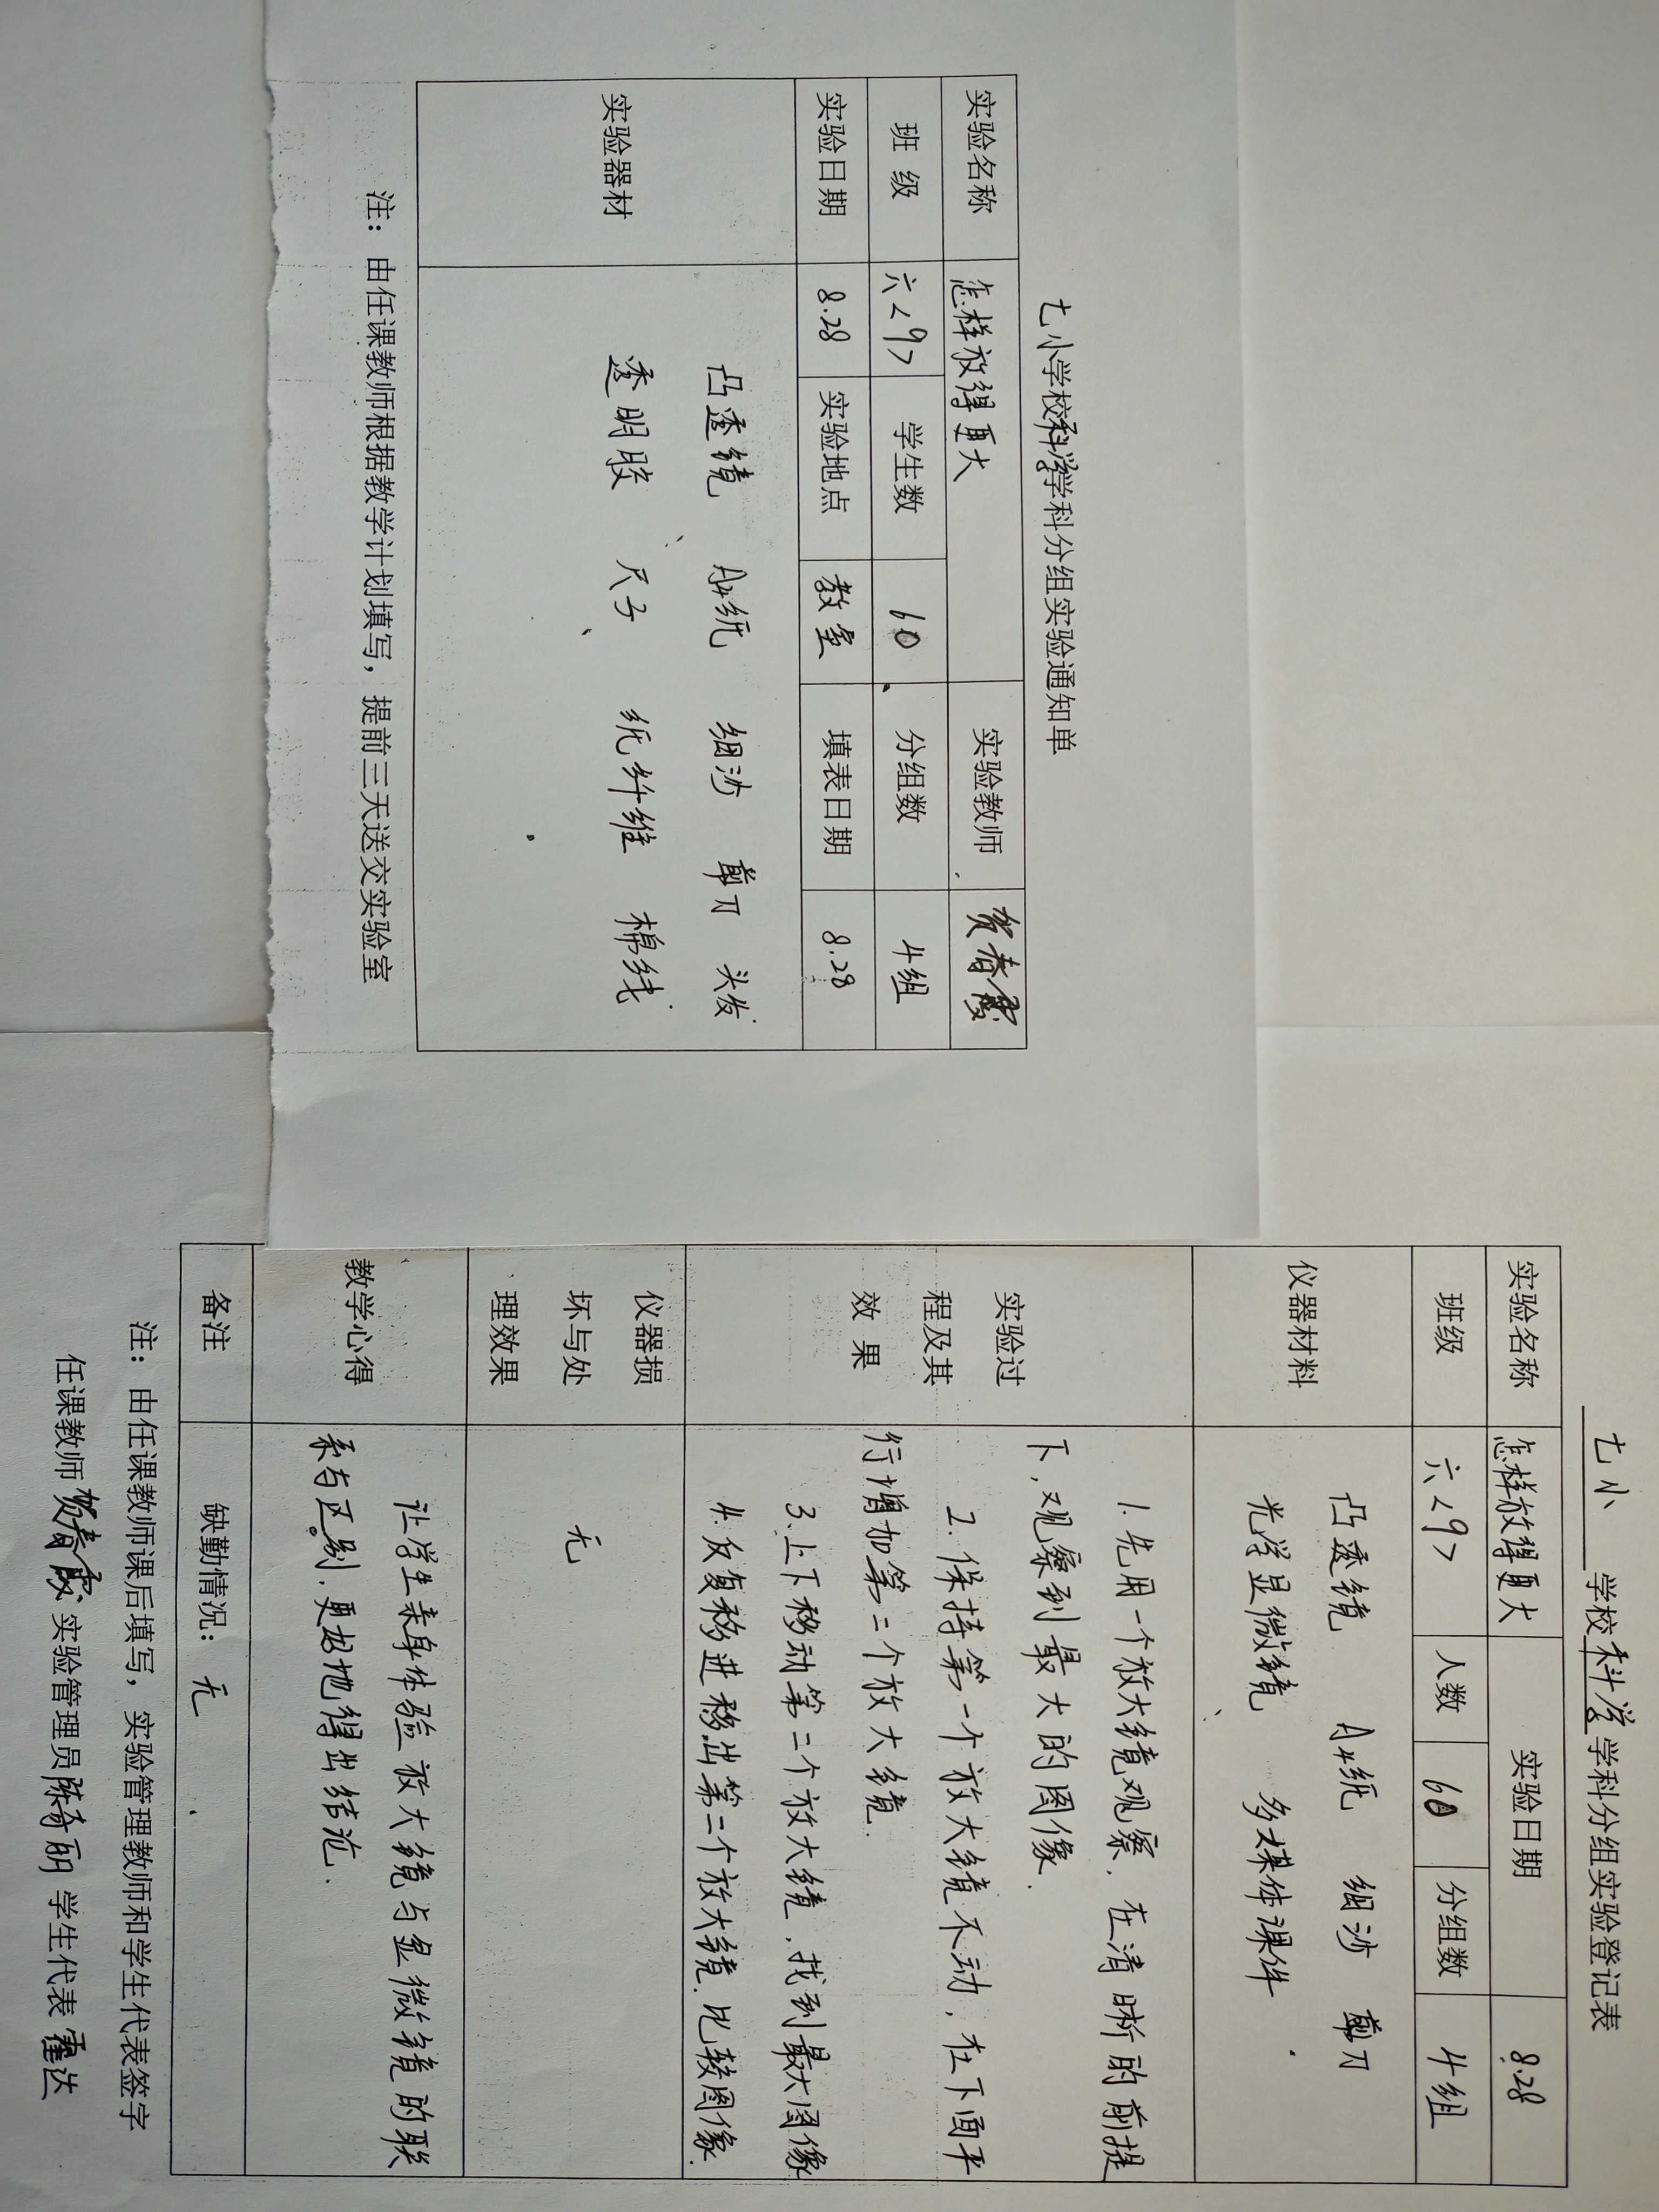 七小学校科学学科分组实验通知单
实验名称 怎样放得更大 实验教师 贺春霞
班 级 六<9> 学生数 60 分组数 4组
实验日期 8.28 实验地点 教室 填表日期 8.28
实验器材 凸透镜 A4纸 细沙 剪刀 头发
透明胶 尺子 纸纤维 棉线
注：由任课教师根据教学计划填写，提前三天送交实验室
七小 学校科学学科分组实验登记表
实验名称 怎样放得更大 实验日期 8.28
班级 六<9> 人数 60 分组数 4组
仪器材料 凸透镜 A4纸 细沙 剪刀
光学显微镜 多媒体课件
实验过
程及其
效 果
1.先用一个放大镜观察，在清晰的前提
下，观察到最大的图像.
2.保持第一个放大镜不动，在下面平
行增加第二个放大镜.
3.上下移动第二个放大镜，找到最大图像
4.反复移进移出第二个放大镜.比较图像.
仪器损
坏与处
理效果
无
教学心得
让学生亲身体验放大镜与显微镜的联
系与区别，更好地得出结论.
备注 缺勤情况：无
注：由任课教师课后填写，实验管理教师和学生代表签字
任课教师 贺春霞 实验管理员 陈奇丽 学生代表